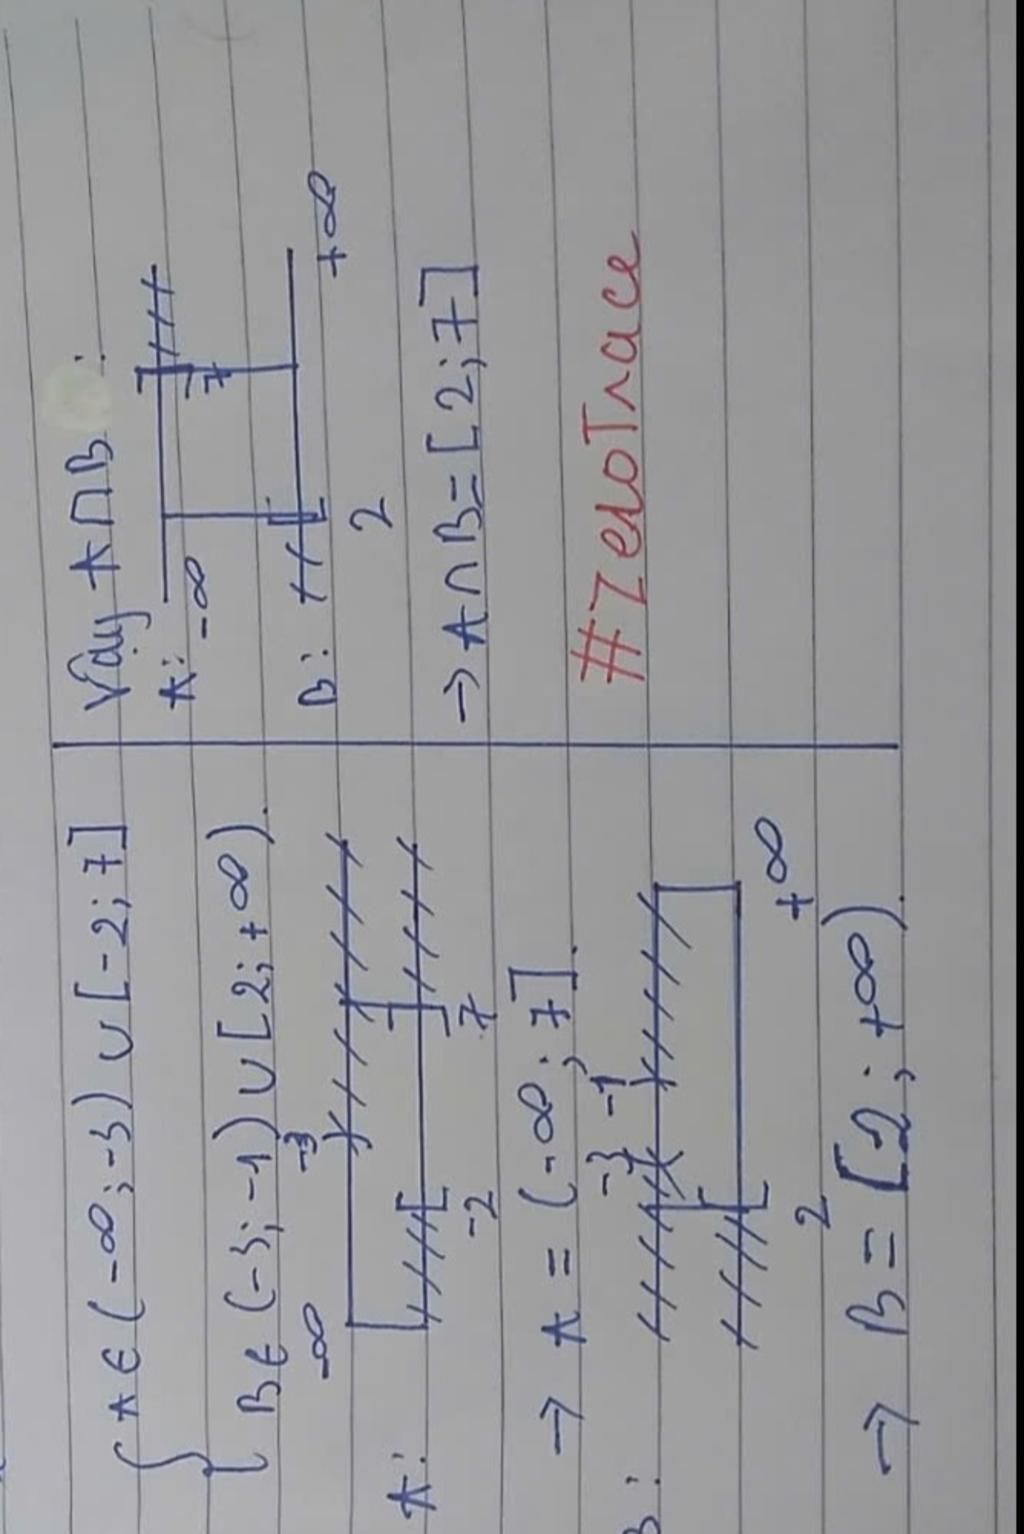 A ∈ (-∞; -3) ∪ [-2; 7]
B ∈ (-3; -1) ∪ [2; +∞).
A:
-∞ -3
-2 7
→ A = (-∞; 7].
B:
-3 -1
2 +∞
→ B = [2; +∞).
Vậy A∩B:
A: -∞ 7
B: 2 +∞
→ A∩B = [2; 7]
#ZeroTrace